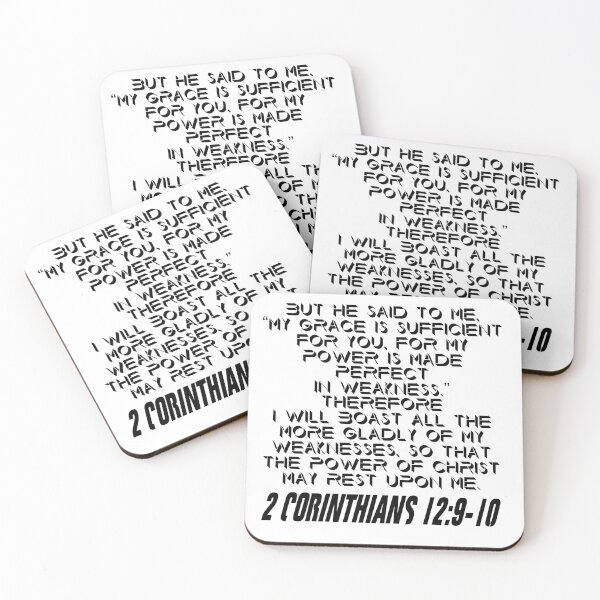 BUT HE SAID TO ME,
“MY GRACE IS SUFFICIENT
FOR YOU, FOR MY
POWER IS MADE
PERFECT
IN WEAKNESS.”
THEREFORE
I WILL BOAST ALL THE
BUT HE SAID TO ME,
“MY GRACE IS SUFFICIENT
FOR YOU, FOR MY
POWER IS MADE
PERFECT
IN WEAKNESS.”
THEREFORE
I WILL BOAST ALL THE
MORE GLADLY OF MY
WEAKNESSES, SO THAT
THE POWER OF CHRIST
ME.
9-10
BUT HE SAID TO ME,
“MY GRACE IS SUFFICIENT
FOR YOU, FOR MY
POWER IS MADE
PERFECT
IN WEAKNESS.”
THEREFORE
I WILL BOAST ALL THE
MORE GLADLY OF MY
WEAKNESSES, SO
THE POWER OF
MAY REST UPON
2 CORINTHIANS
BUT HE SAID TO ME,
“MY GRACE IS SUFFICIENT
FOR YOU, FOR MY
POWER IS MADE
PERFECT
IN WEAKNESS.”
THEREFORE
I WILL BOAST ALL THE
MORE GLADLY OF MY
WEAKNESSES, SO THAT
THE POWER OF CHRIST
MAY REST UPON ME.
2 CORINTHIANS 12:9-10